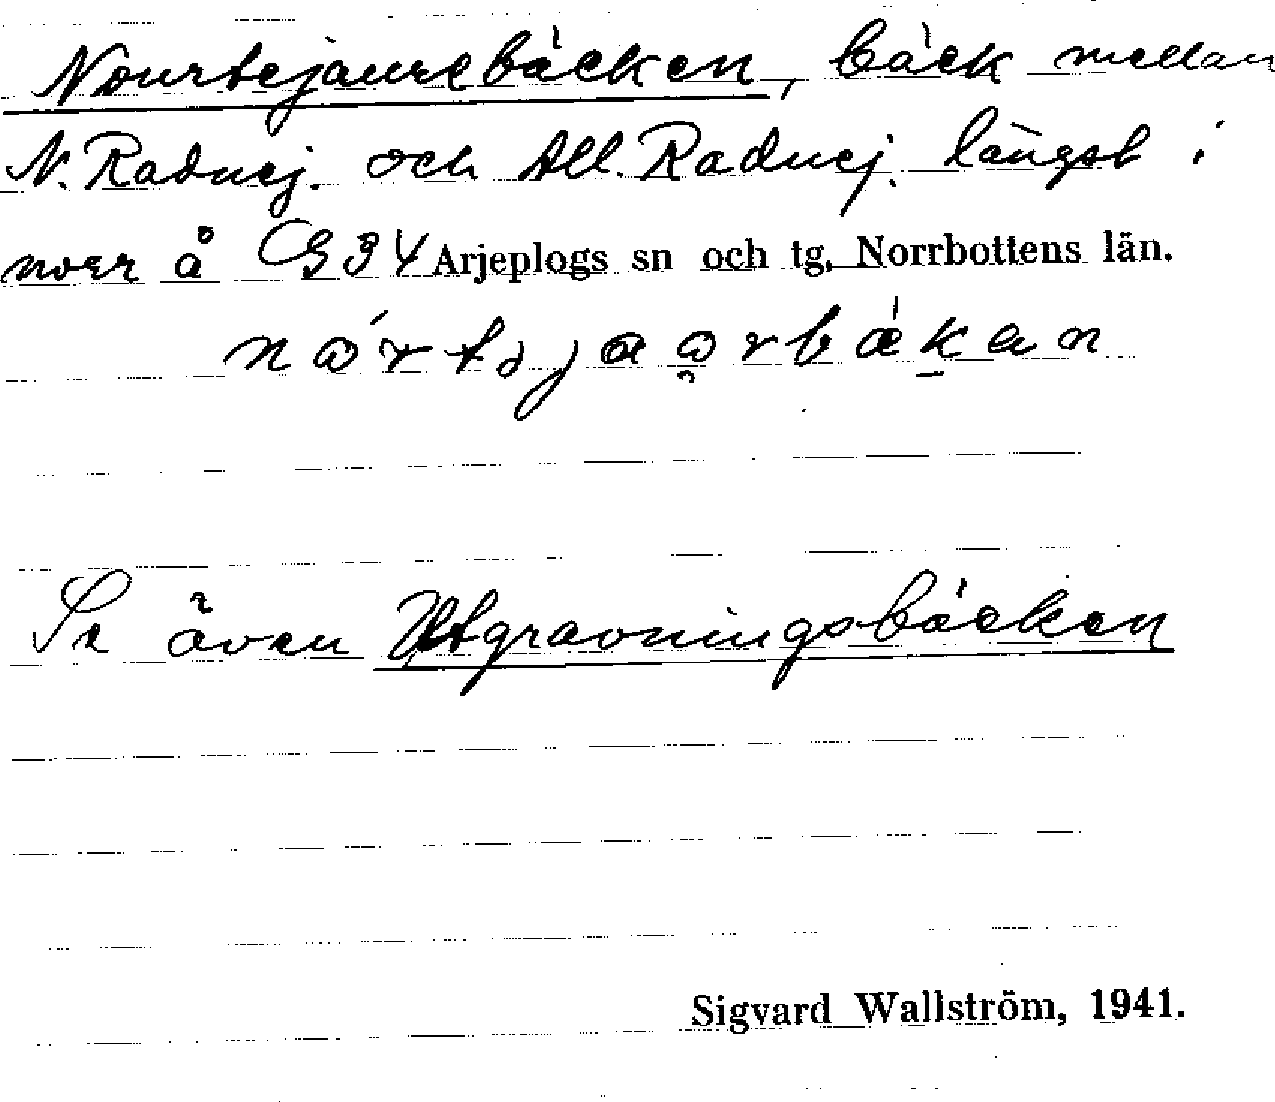 Nourtejaurebäcken, bäck mellan
N. Radnej. och All. Radnej. längst i
norr å G 34 Arjeplogs sn och tg, Norrbottens län.
Se även Utgravningsbäcken
Sigvard Wallström, 1941.